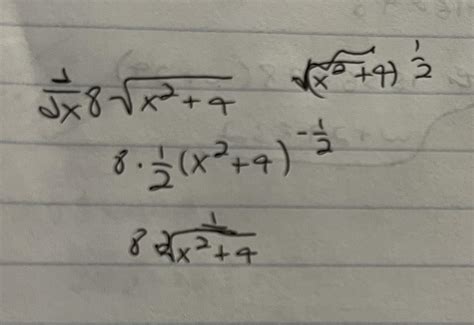 d/dx 8√(x²+4) (x²+4)^(1/2)
8 · 1/2 (x²+4)^(-1/2)
8 1/(2√(x²+4))